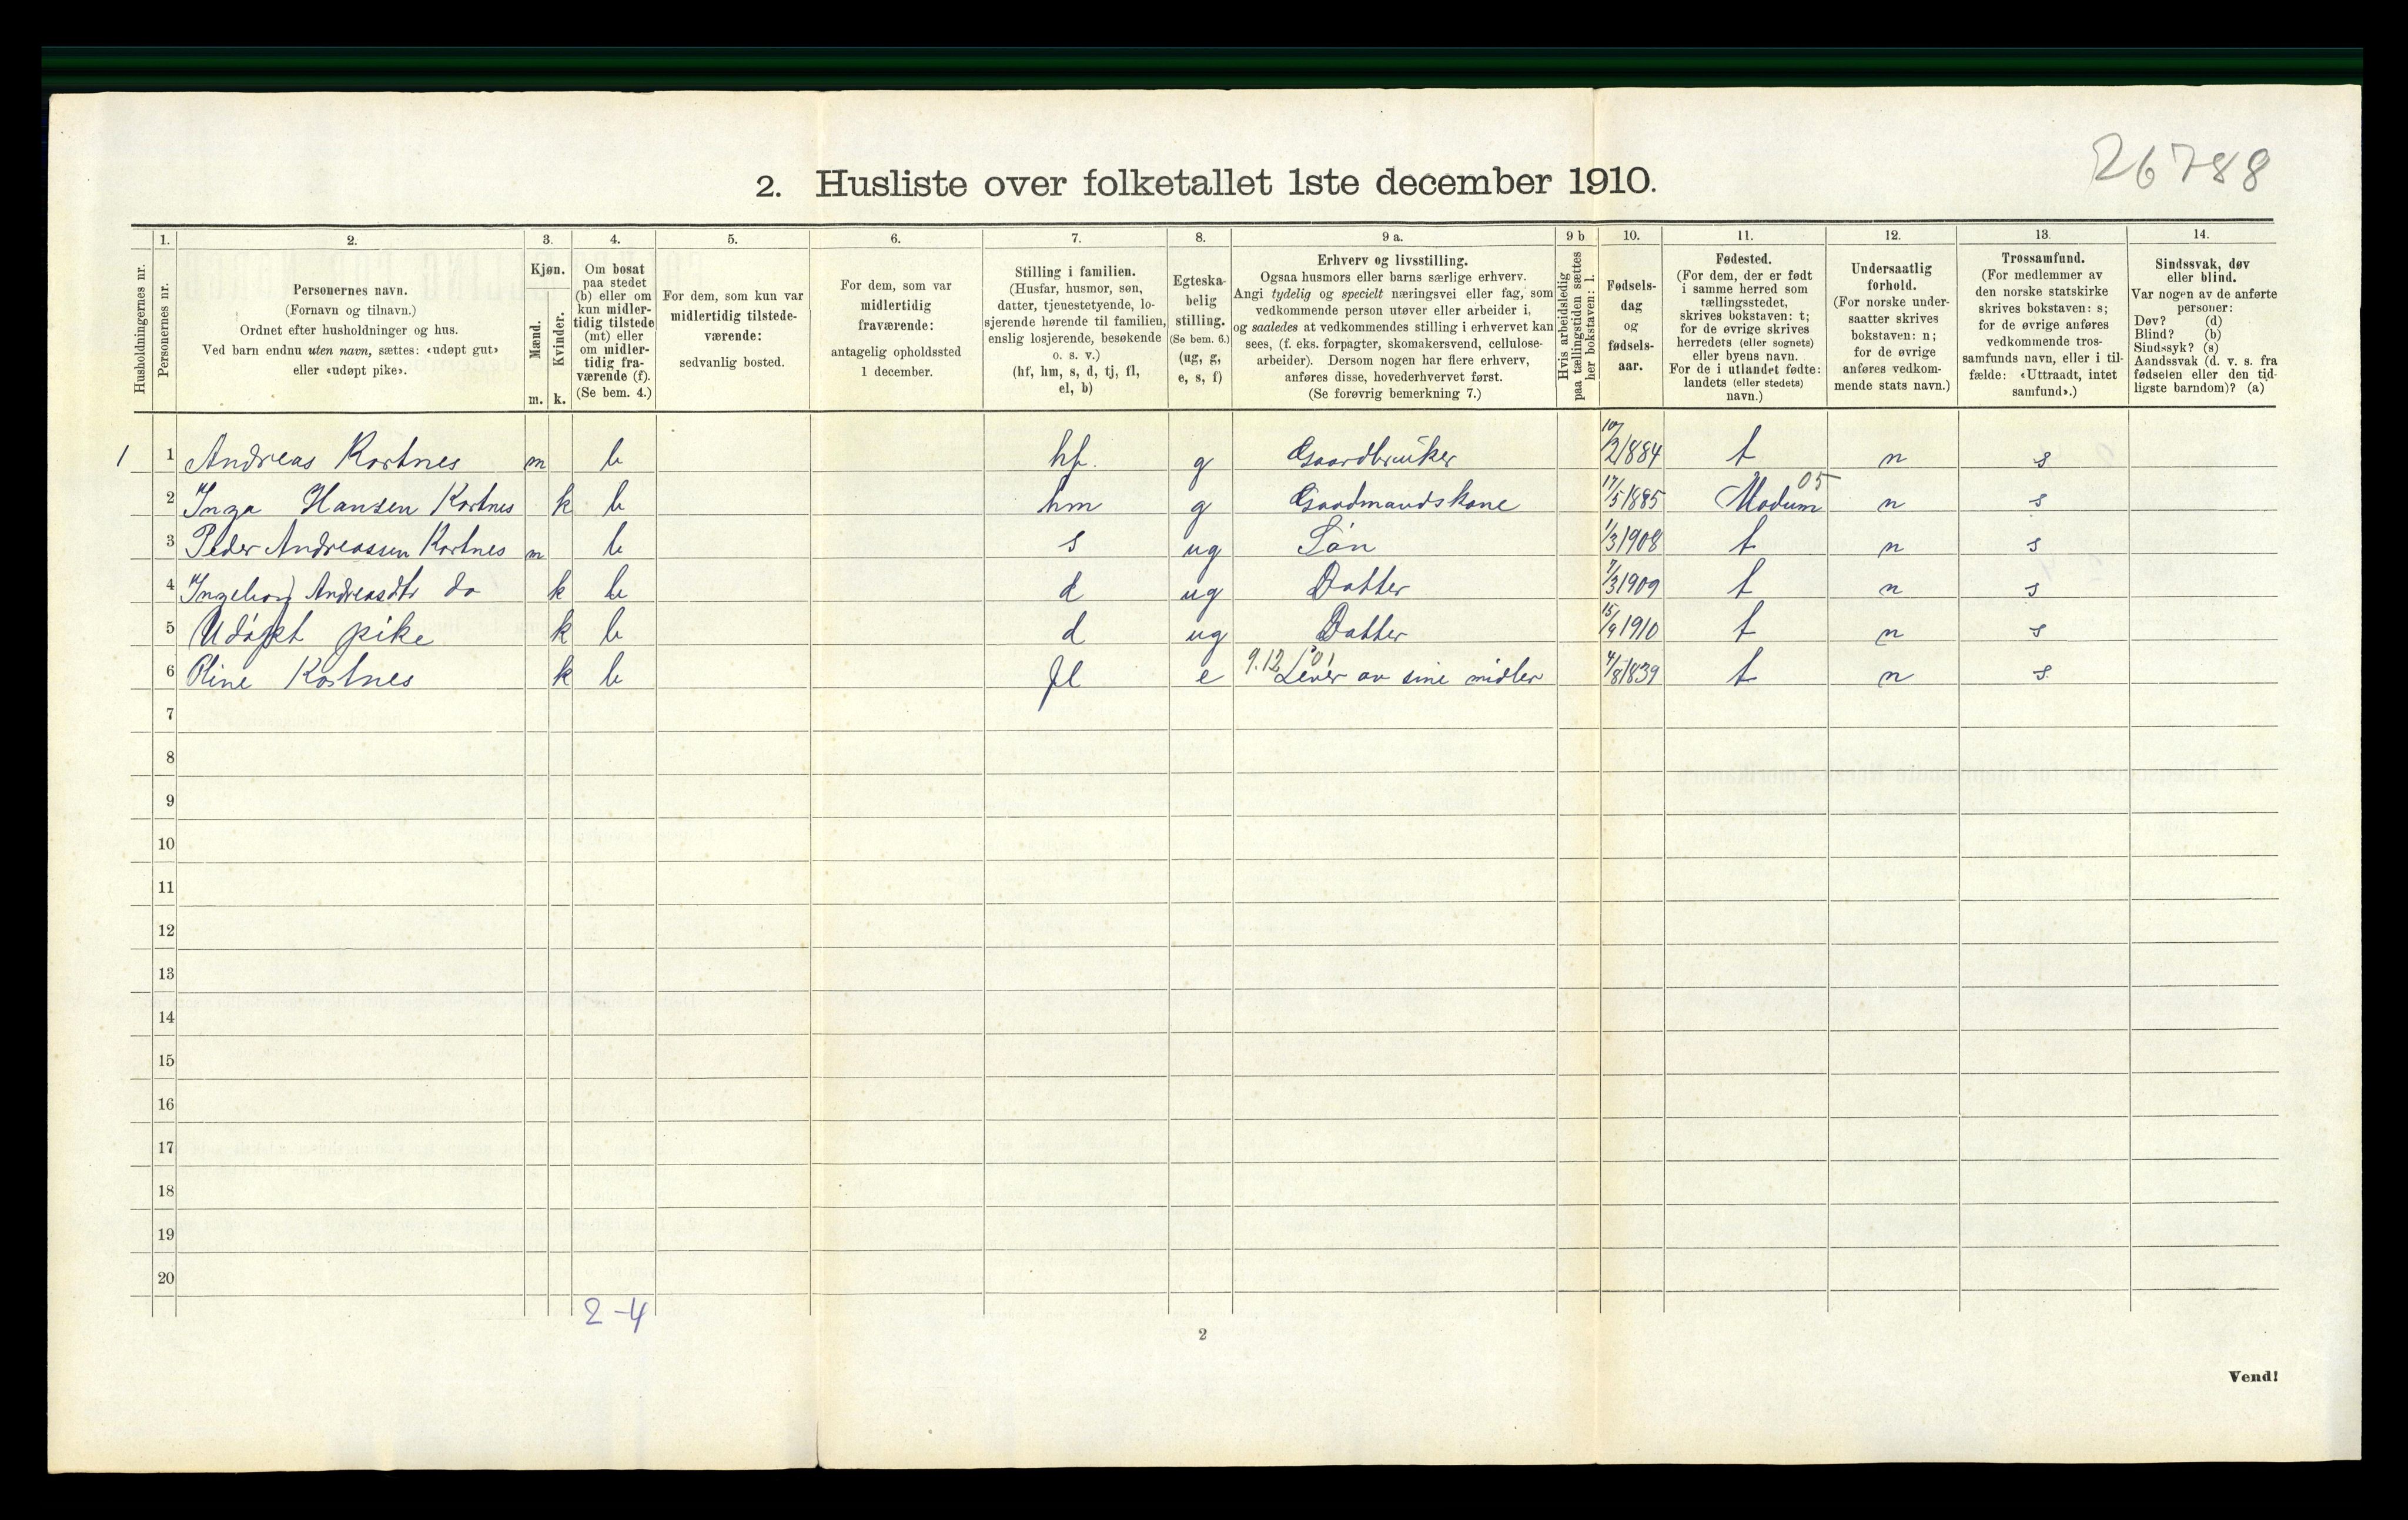 26788
2. Husliste over folketallet 1ste december 1910.
Husholdningernes nr.
1.
Personernes nr.
2.
Personernes navn.
(Fornavn og tilnavn.)
Ordnet efter husholdninger og hus.
Ved barn endnu uten navn, sættes: «udøpt gut»
eller «udøpt pike».
3.
Kjøn.
Mænd.
Kvinder.
m. k.
4.
Om bosat
paa stedet
(b) eller om
kun midler-
tidig tilstede
(mt) eller
om midler-
tidig fra-
værende (f).
(Se bem. 4.)
5.
For dem, som kun var
midlertidig tilstede-
værende:
sedvanlig bosted.
6.
For dem, som var
midlertidig
fraværende:
antagelig opholdssted
1 december.
7.
Stilling i familien.
(Husfar, husmor, søn,
datter, tjenestetyende, lo-
sjerende hørende til familien,
enslig losjerende, besøkende
o. s. v.)
(hf, hm, s, d, tj, fl,
el, b)
8.
Egteska-
belig
stilling.
(Se bem. 6.)
(ug, g,
e, s, f)
9 a.
Erhverv og livsstilling.
Ogsaa husmors eller barns særlige erhverv.
Angi tydelig og specielt næringsvei eller fag, som
vedkommende person utøver eller arbeider i,
og saaledes at vedkommendes stilling i erhvervet kan
sees, (f. eks. forpagter, skomakersvend, cellulose-
arbeider). Dersom nogen har flere erhverv,
anføres disse, hovederhvervet først.
(Se forøvrig bemerkning 7.)
9 b
Hvis arbeidsledig
paa tællingstiden sættes
her bokstaven: l.
10.
Fødsels-
dag
og
fødsels-
aar.
11.
Fødested.
(For dem, der er født
i samme herred som
tællingsstedet,
skrives bokstaven: t;
for de øvrige skrives
herredets (eller sognets)
eller byens navn.
For de i utlandet fødte:
landets (eller stedets)
navn.)
12.
Undersaatlig
forhold.
(For norske under-
saatter skrives
bokstaven: n;
for de øvrige
anføres vedkom-
mende stats navn.)
13.
Trossamfund.
(For medlemmer av
den norske statskirke
skrives bokstaven: s;
for de øvrige anføres
vedkommende tros-
samfunds navn, eller i til-
fælde: «Uttraadt, intet
samfund».)
14.
Sindssvak, døv
eller blind.
Var nogen av de anførte
personer:
Døv? (d)
Blind? (b)
Sindssyk? (s)
Aandssvak (d. v. s. fra
fødselen eller den tid-
ligste barndom)? (a)
1 1 Andreas Kortnes m b hf. g Gaardbruker 10/2 1884 t n s
2 Inga Hansen Kortnes k b hm g Gaardmandskone 17/5 1885 Modum 05 n s
3 Peder Andreassen Kortnes m b s ug Søn 1/3 1908 t n s
4 Ingeborg Andreasdtr do k b d ug Datter 7/3 1909 t n s
5 Udøpt pike k b d ug Datter 15/9 1910 t n s
6 Kortnes k b fl e 9.12 Lever av sine midler 4/8 1839 t n s
7
8
9
10
11
12
13
14
15
16
17
18
19
20
2-4
2
Vend!